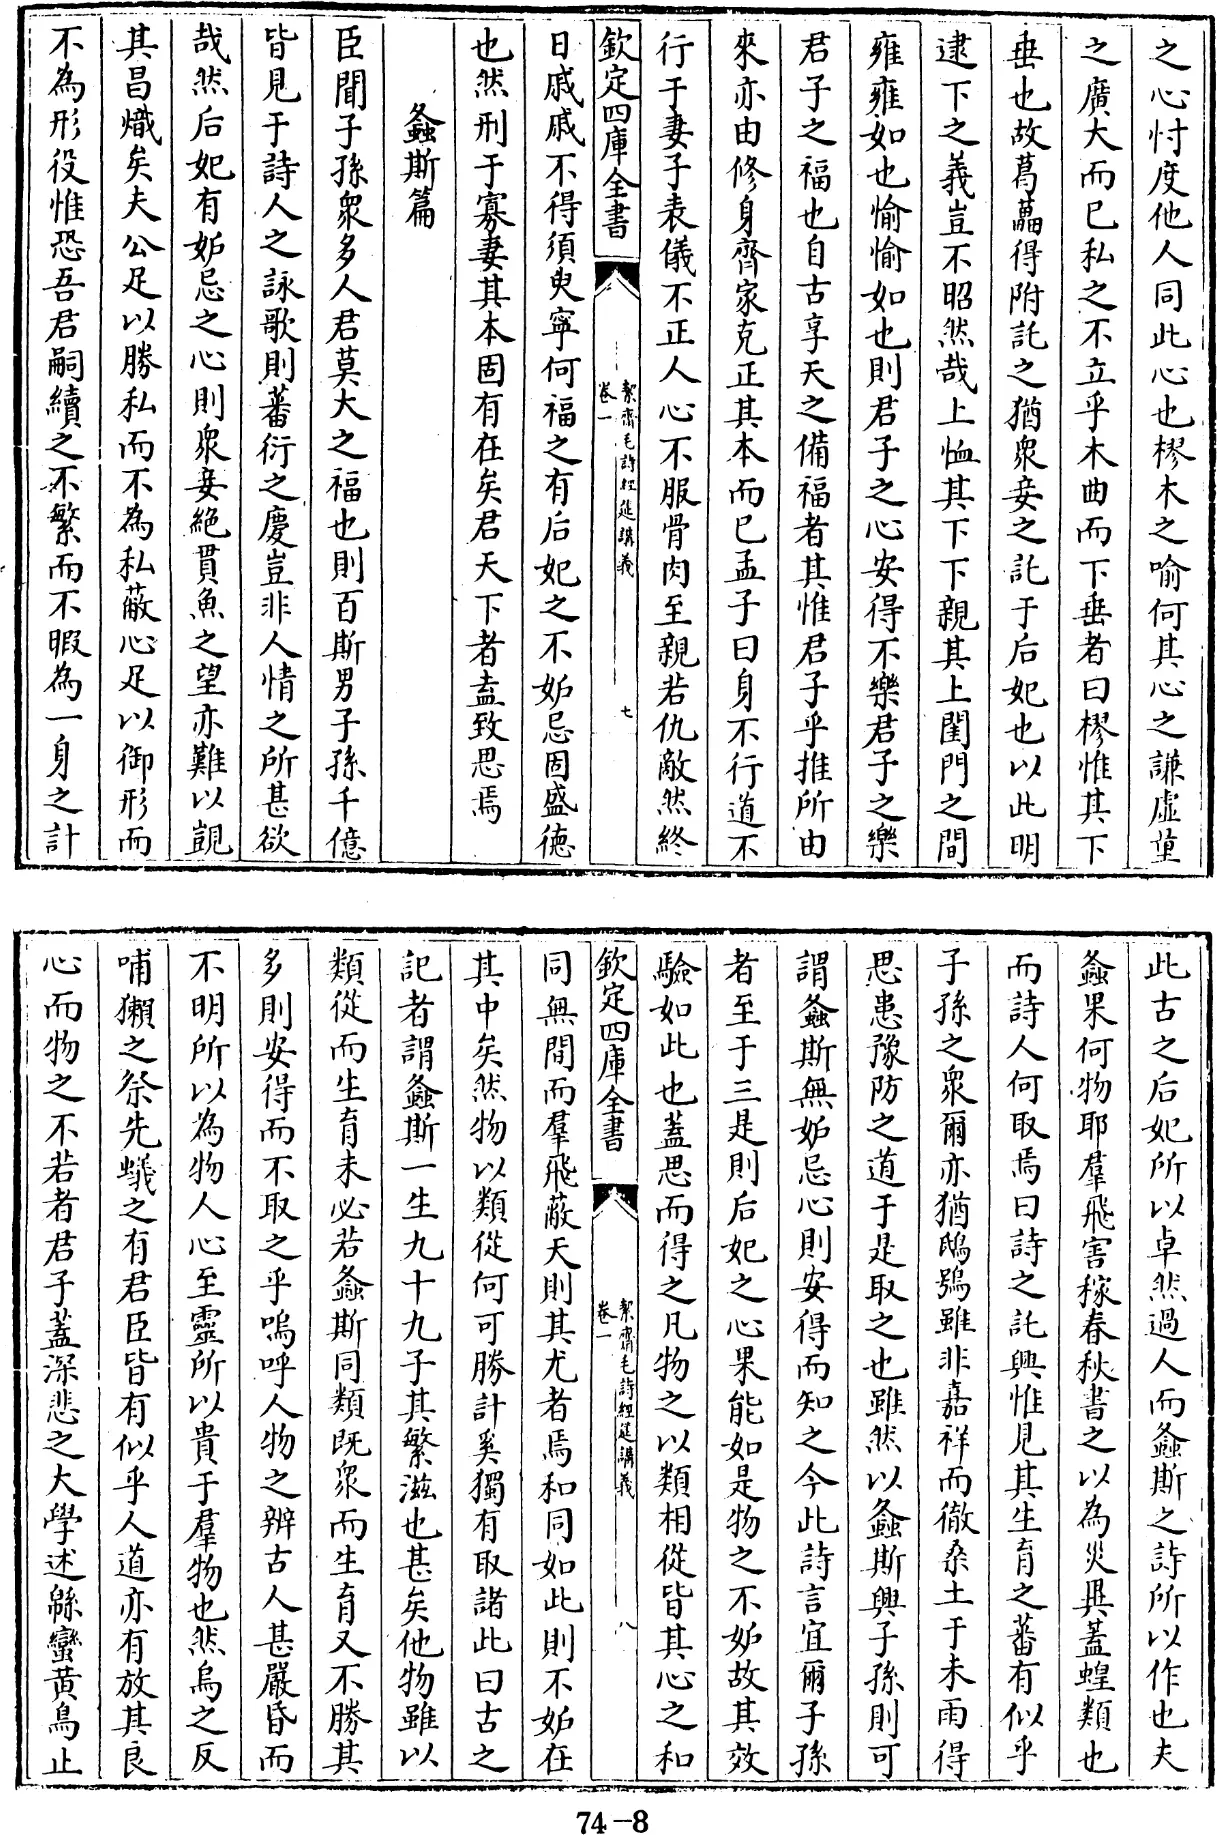 之心忖度他人同此心也樛木之喻何其心之謙虛華
之廣大而已私之不立乎木曲而下垂者曰樛惟其下
垂也故葛藟得附託之猶衆妾之託于后妃也以此明
逮下之義豈不昭然哉上恤其下下親其上閨門之間
雍雍如也愉愉如也則君子之心安得不樂君子之樂
君子之福也自古享天之備福者其惟君子乎推所由
來亦由修身齊家克正其本而已孟子曰身不行道不
行于妻子表儀不正人心不服骨肉至親若仇敵然終
欽定四庫全書
絜齋毛詩經筵講義
卷一
七
日戚戚不得須臾寧何福之有后妃之不妬忌固盛德
也然刑于寡妻其本固有在矣君天下者盍致思焉
螽斯篇
臣聞子孫衆多人君莫大之福也則百斯男子孫千億
皆見于詩人之詠歌則蕃衍之慶豈非人情之所甚欲
哉然后妃有妬忌之心則衆妾絶貫魚之望亦難以覬
其昌熾矣夫公足以勝私而不為私蔽心足以御形而
不為形役惟恐吾君嗣續之不繁而不暇為一身之計
此古之后妃所以卓然過人而螽斯之詩所以作也夫
螽果何物耶羣飛害稼春秋書之以為災異蓋蝗類也
而詩人何取焉曰詩之託興惟見其生育之蕃有似乎
子孫之衆爾亦猶鴟鴞雖非嘉祥而徹桑土于未雨得
思患豫防之道于是取之也雖然以螽斯興子孫則可
謂螽斯無妬忌心則安得而知之今此詩言宜爾子孫
者至于三是則后妃之心果能如是物之不妬故其效
驗如此也蓋思而得之凡物之以類相從皆其心之和
欽定四庫全書
絜齋毛詩經筵講義
卷一
八
同無間而羣飛蔽天則其尤者焉和同如此則不妬在
其中矣然物以類從何可勝計奚獨有取諸此曰古之
記者謂螽斯一生九十九子其繁滋也甚矣他物雖以
類從而生育未必若螽斯同類既衆而生育又不勝其
多則安得而不取之乎嗚呼人物之辨古人甚嚴昏而
不明所以為物人心至靈所以貴于羣物也然烏之反
哺獺之祭先蟻之有君臣皆有似乎人道亦有放其良
心而物之不若者君子蓋深悲之大學述緜蠻黃鳥止
74-8